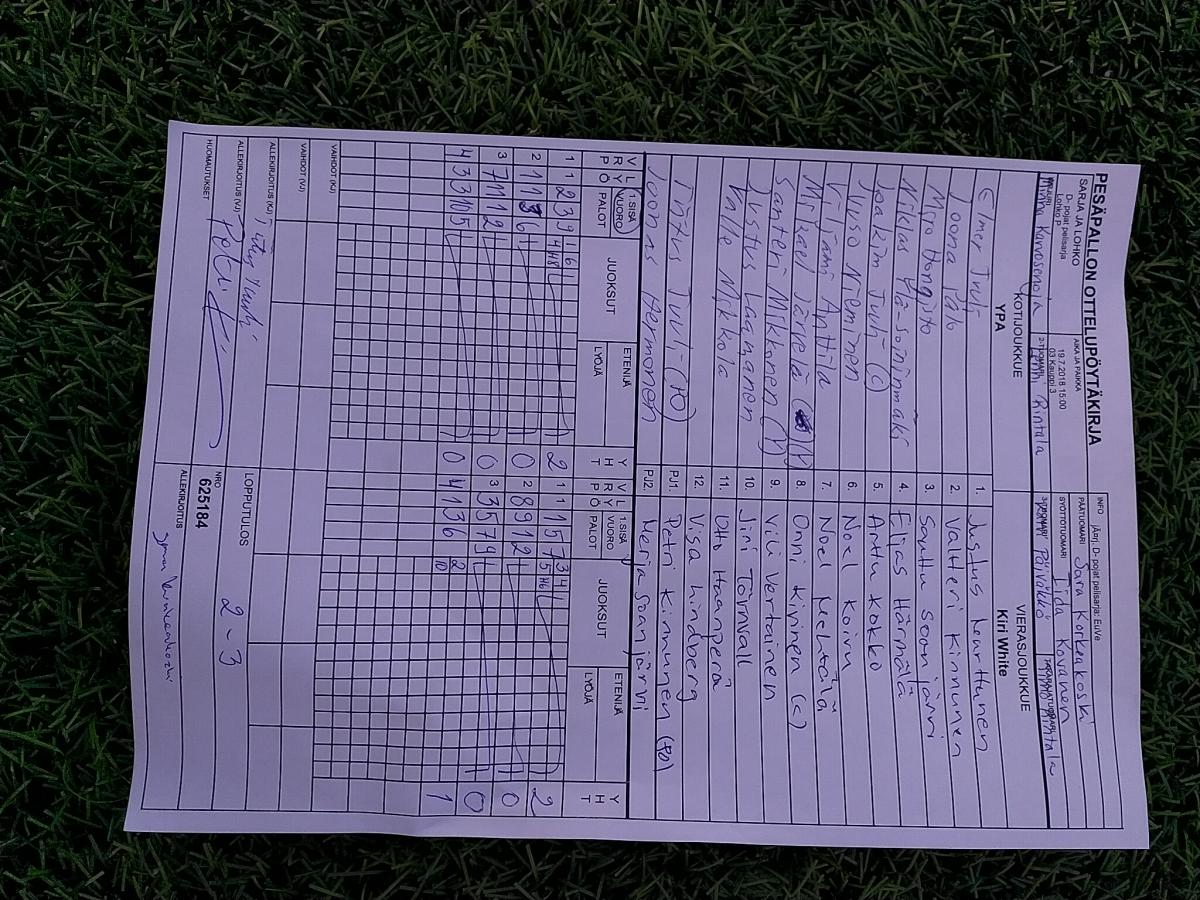 PESÄPALLON OTTELUPÖYTÄKIRJA
SARJA JA LOHKO
D- pojat pelisarja
Lohko P
AIKA JA PAIKKA
19.7.2018 15:00
03 Kauppi 3
INFO Järj. D- pojat pelisarja: EuVe
PÄÄTUOMARI Sara Korkeakoski
SYÖTTÖTUOMARI Iida Kovanen
2-TUOMARI Rintala
3-TUOMARI Päiväkkö
Rintala
KOTIJOUKKUE
YPA
VIERASJOUKKUE
Kiri White
Elmer Juuti
1. Justus Leurtunen
Joona Palo
2. Valtteri Kinnunen
Miro Hongisto
3. Santtu Soonjärvi
Niklas Ylä-Soininmäki
4. Elias Härmälä
Joakim Juuti (c)
5. Arttu Kokko
Juuso Nieminen
6. Noel Koivu
Viljami Anttila
7. Noel
Mikael Järvelä
8. Onni Kivinen (c)
Santeri Mikkonen
9. Vili Vertainen
Justus Laamanen
10. Jiri Törnvall
Valle Mikkola
11. Otto Haanperä
12. Visa Lindberg
Juuti (PO)
PJ1. Petri Kinnunen (PO)
Joonas Hermonen
PJ2. Merja Soonjärvi
V R P
L Y Ö
1.SISÄ VUORO PALOT
JUOKSUT
ETENIJÄ
LYÖJÄ
Y H T
V R P
L Y Ö
1.SISÄ VUORO PALOT
JUOKSUT
ETENIJÄ
LYÖJÄ
Y H T
1 1 2 3 9
2
1 1 1 5 7
2
2 11
0
2 8 9 12
0
3 7 11 12
0
3 3 5 7 9
0
4 3 3 10 5
0
4 1 3 6
1
VAIHDOT (KJ)
VAIHDOT (VJ)
ALLEKIRJOITUS (KJ)
ALLEKIRJOITUS (VJ) Petri
HUOMAUTUKSET
LOPPUTULOS 2 - 3
NRO
625184
ALLEKIRJOITUS